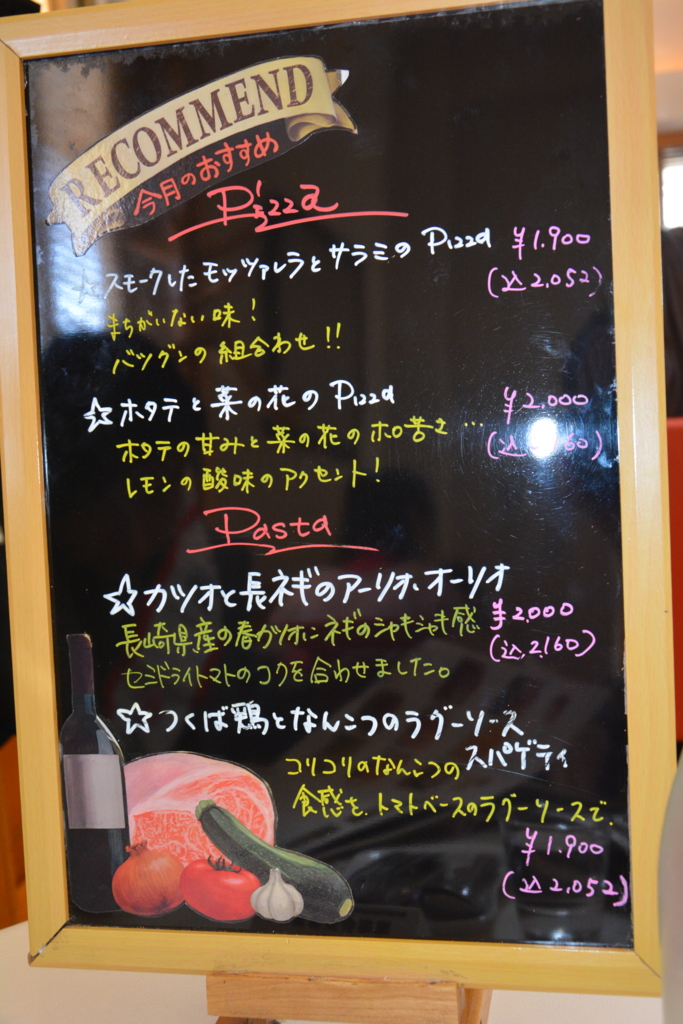 RECOMMEND
今月のおすすめ
Pizza
☆スモークしたモッツァレラとサラミのPizza ¥1.900
(込2,052)
まちがいない味!
バツグンの組合わせ!!
☆ホタテと菜の花のPizza ¥2.000
ホタテの甘みと菜の花のホロ苦さ… (込2,160)
レモンの酸味のアクセント!
Pasta
☆カツオと長ネギのアーリオ.オーリオ
長崎県産の春カツオにネギのシャキシャキ感 ¥2,000
(込2,160)
セミドライトマトのコクを合わせました。
☆つくば鶏となんこつのラグーソース
スパゲティ
コリコリのなんこつの
食感を、トマトベースのラグーソースで.
¥1.900
(込2,052)